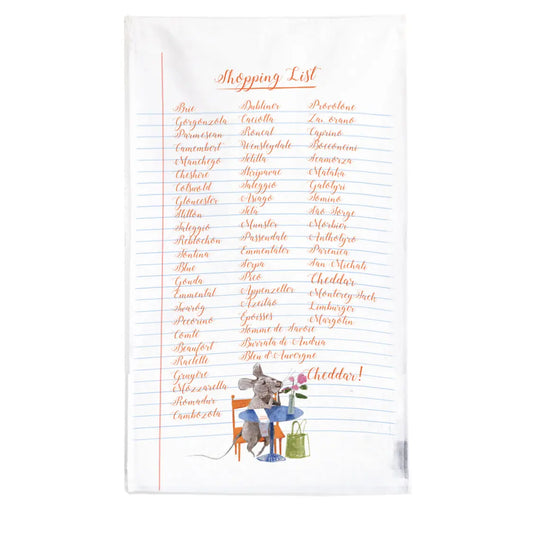 Shopping List
Brie
Gorgonzola
Parmesan
Camembert
Manchego
Cheshire
Cotswold
Gloucester
Stilton
Taleggio
Reblochon
Fontina
Blue
Gouda
Emmental
Twaróg
Pecorino
Comté
Beaufort
Raclette
Gruyére
Mozzarella
Romadur
Cambozola
Dubliner
Caciotta
Roncal
Wensleydale
Tetilla
Skripavac
Taleggio
Asiago
Feta
Munster
Passendale
Emmentaler
Serpa
Pico
Appenzeller
Azeitão
Epoisses
Tomme de Savoie
Burrata di Andria
Bleu d'Auvergne
Provolone
Caprino
Bocconcini
Scamorza
Malaka
Galotyri
Tomino
Sao Jorge
Morbier
Anthotyro
Parenica
San Michali
Cheddar
Monterey Jack
Limburger
Margotin
Cheddar!